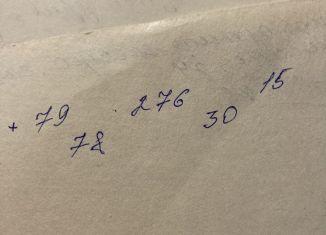 + 79 78 276 30 15